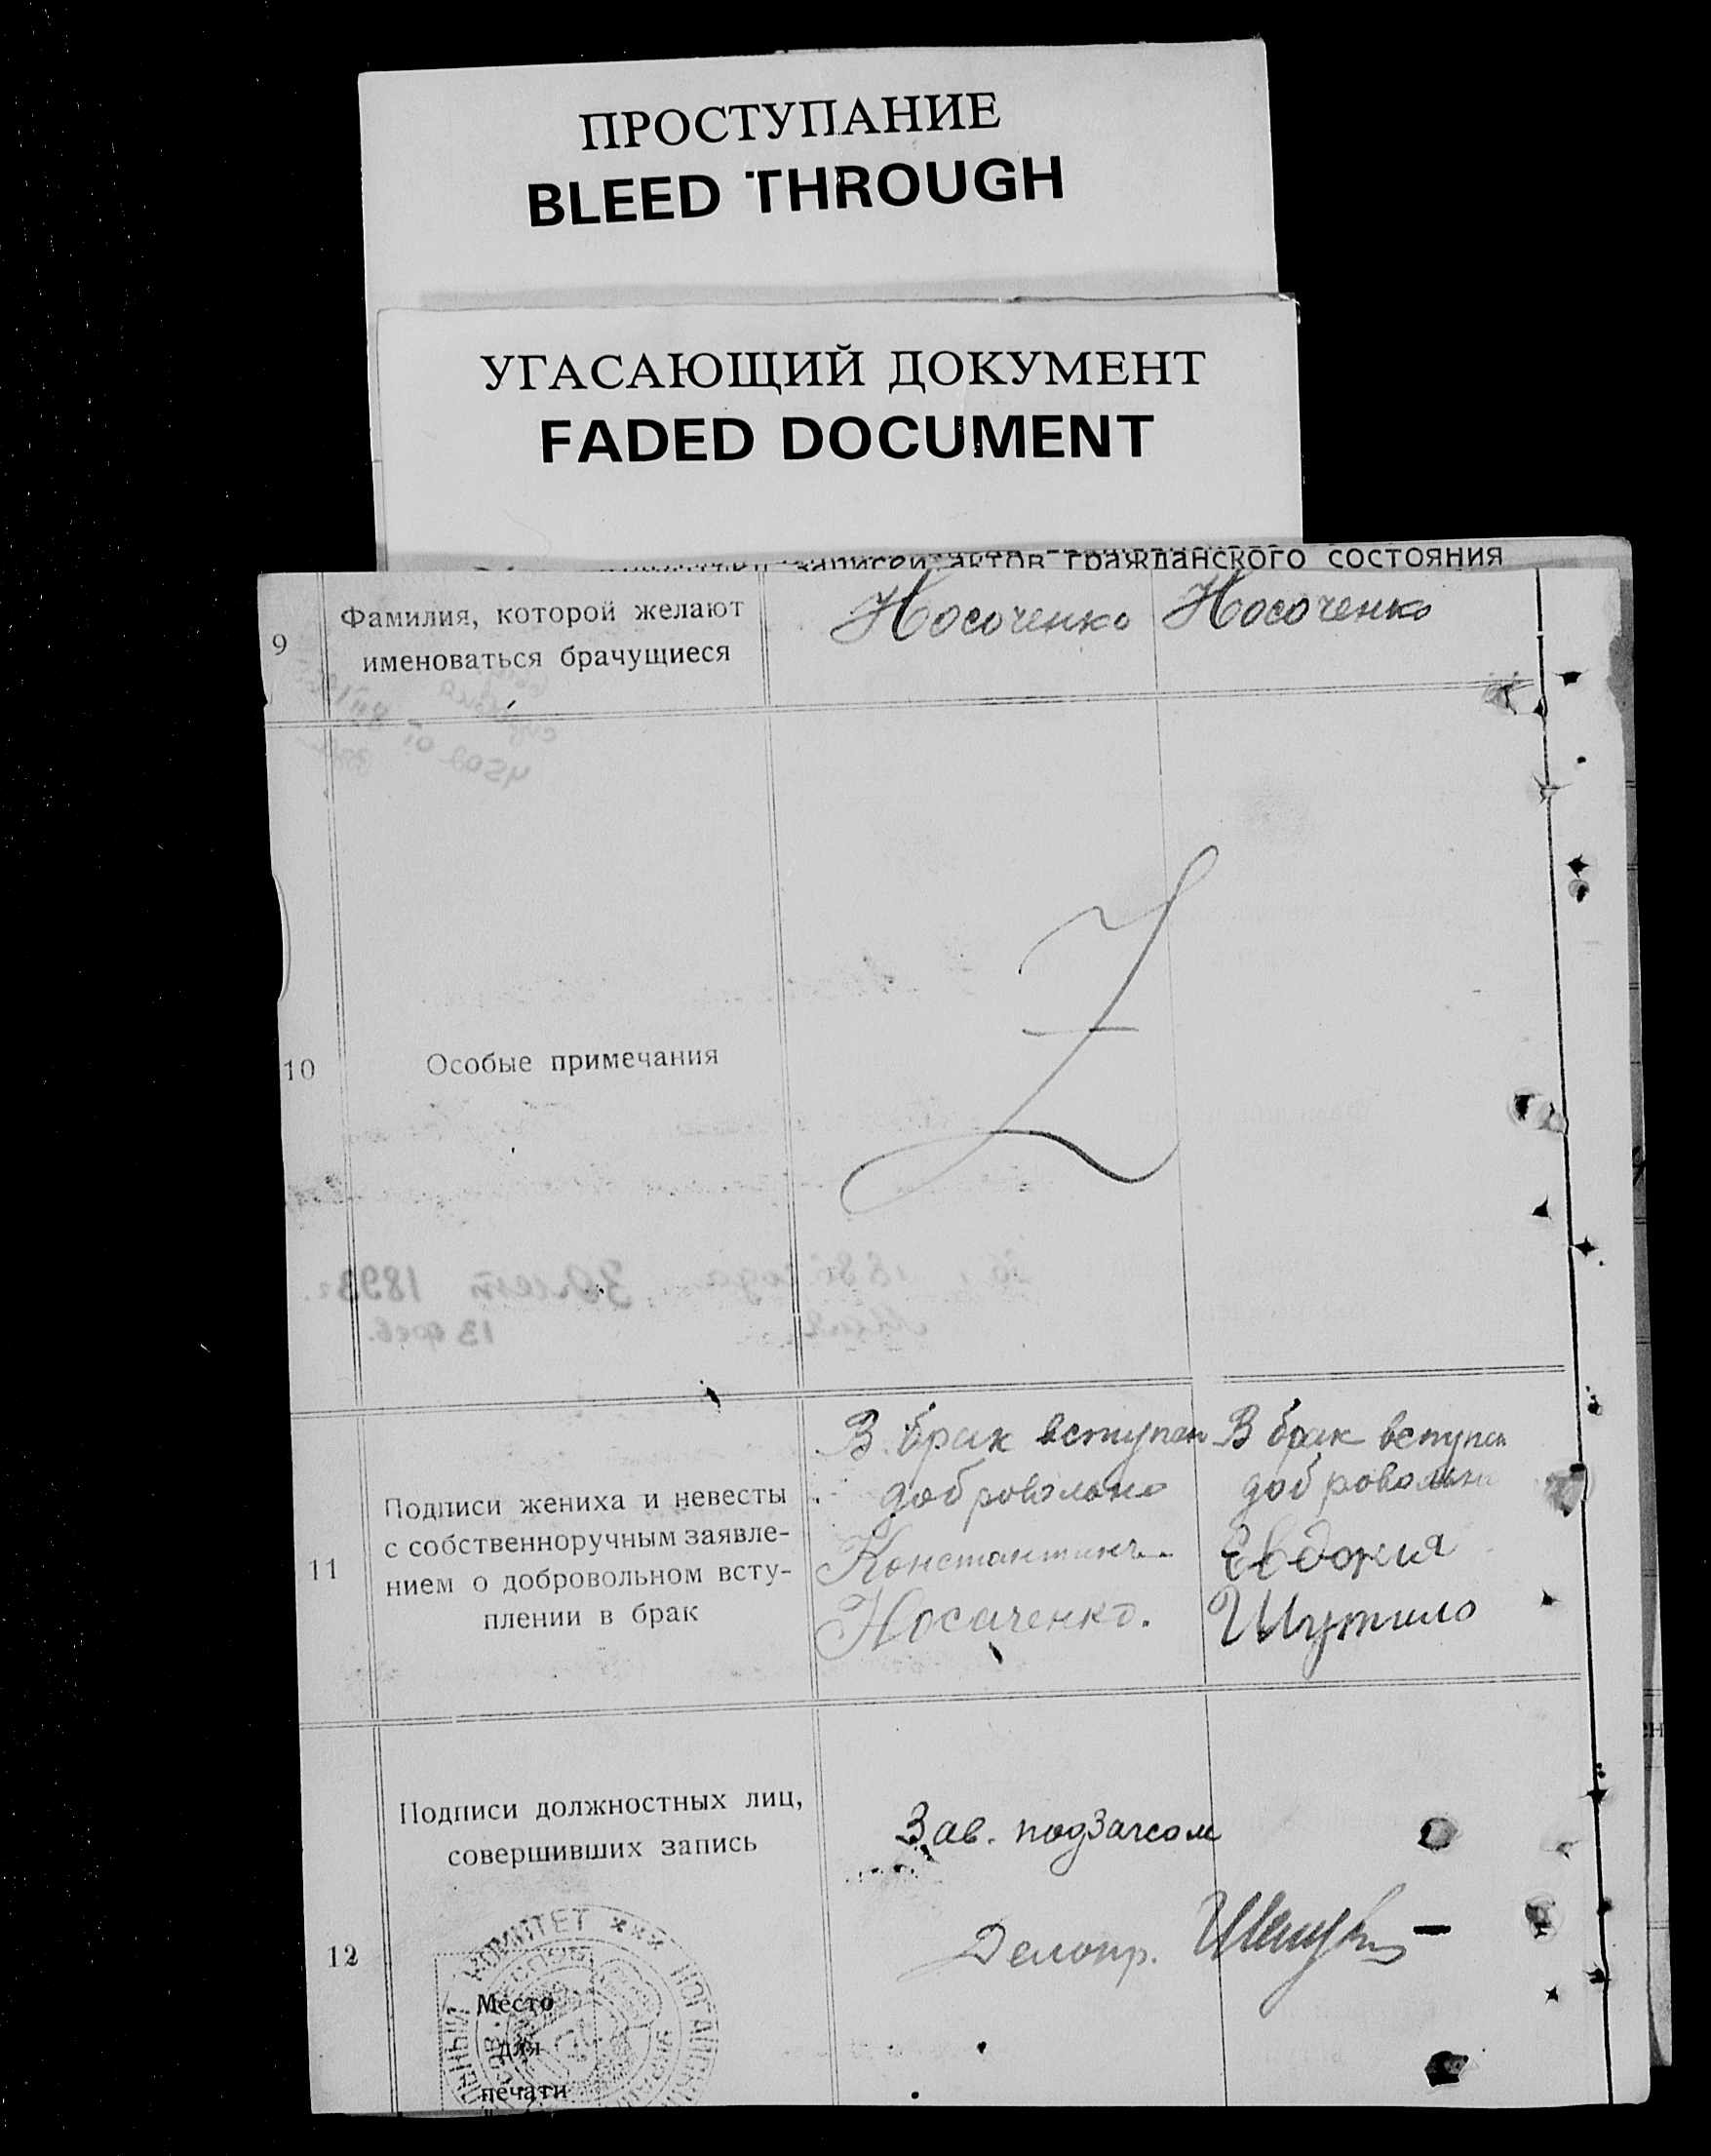 ПРОСТУПАНИЕ
BLEED THROUGH
УГАСАЮЩИЙ ДОКУМЕНТ
FADED DOCUMENT
записей актов гражданского состояния
9
Фамилия, которой желают
именоваться брачущиеся
Носоченко Носоченко
10
Особые примечания
Z
30 лет 1893 г.
13 фев.
В брак вступаю В брак вступаю
добровольно добровольно
11
Подписи жениха и невесты
с собственноручным заявле-
нием о добровольном всту-
плении в брак
Константин Евдокия
Носаченко. Шутило
12
Подписи должностных лиц,
совершивших запись
Зав. подзагсом
Делопр.
КОМИТЕТ ***
Место
для
печати